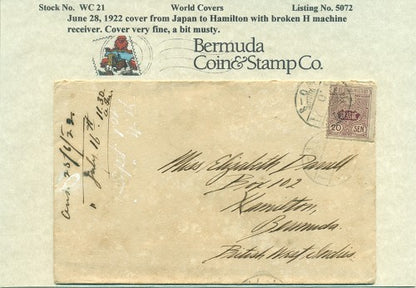 Stock No. WC 21 World Covers Listing No. 5072
June 28, 1922 cover from Japan to Hamilton with broken H machine
receiver. Cover very fine, a bit musty.
Bermuda
Coin&Stamp Co.
20 SEN
Miss Elizabeth Darrell
Box 102
Hamilton,
Bermuda.
British West Indies.
July 16th 11.30